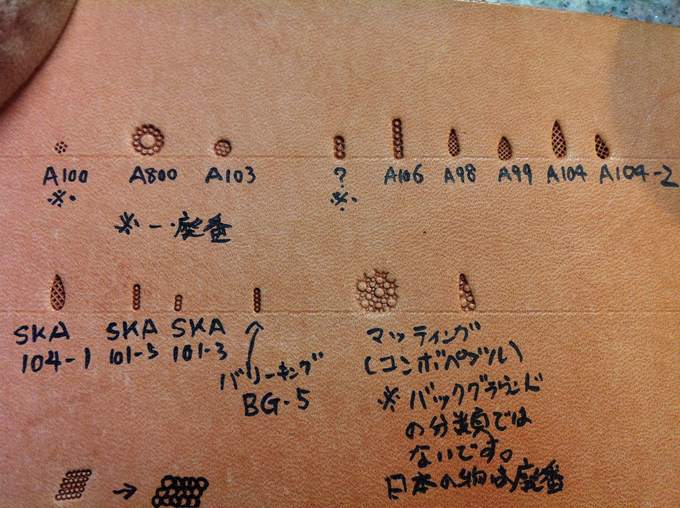 A100 A800 A103 ? A106 A98 A99 A104 A104-2
※ ※
※一.廃番
SKA SKA SKA
104-1 101-5 101-3
バリーキング
BG-5
マッティング
(コンボペブル)
※バックグラウンド
の分類では
ないです。
日本の物は廃番
→